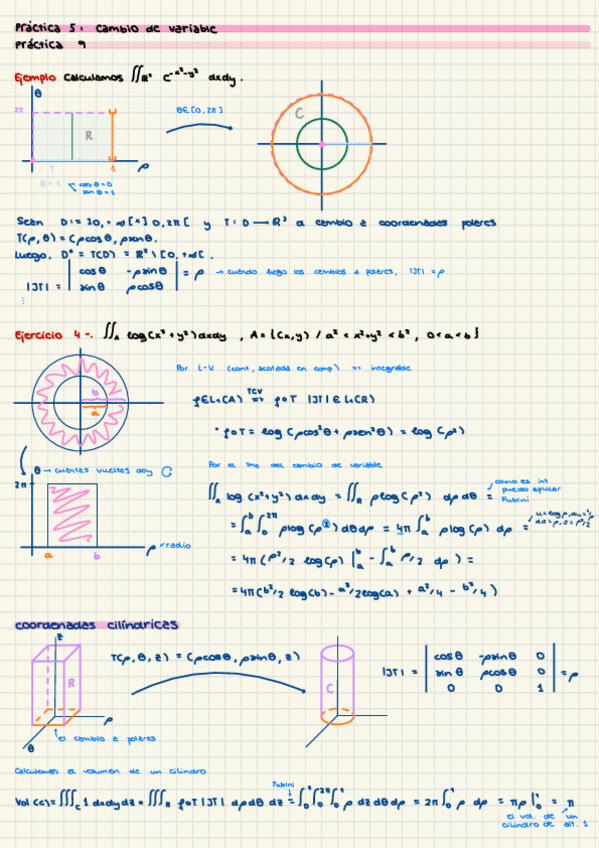 Práctica 5: Cambio de variable
Práctica 9
Ejemplo Calculamos ∬ℝ² e^-x²-y² dxdy.
θ
2π
R
1
ρ
θ = t
cosθ=0
sinθ=1
θ∈[0,2π]
C
Sean D:= ]0,+∞[×]0,2π[ y T: D → ℝ² a cambio a coordenadas polares
T(ρ,θ) = (ρcosθ, ρsinθ).
Luego, D* = T(D) = ℝ² \ [0,+∞[.
|JT| = | cosθ -ρsinθ | = ρ → cuando hago los cambios a polares, |JT| = ρ
| sinθ ρcosθ |
⋮
Ejercicio 4-. ∬A log(x²+y²)dxdy , A = {(x,y) / a² < x²+y² < b², 0<a<b}
b
a
Por L-V (cont, acotada en comp) => integrable
f∈L₁(A) TCV <=> f∘T |JT| ∈ L₁(R)
• f∘T = log(ρcos²θ + ρsen²θ) = log(ρ²)
θ → cuántas vueltas doy
2π
a b
ρ → radio
Por el Tma del cambio de variable
∬A log(x²+y²) dxdy = ∬R ρlog(ρ²) dρ dθ =
como es int puedo aplicar Fubini
= ∫a^b ∫0^2π ρlog(ρ²) dθdρ = 4π ∫a^b ρ log(ρ) dρ =
= 4π (ρ²/2 log(ρ) |a^b - ∫a^b ρ/2 dρ) =
= 4π(b²/2 log(b) - a²/2 log(a) + a²/4 - b²/4)
coordenadas cilíndricas
z
R
ρ
θ
el cambio a polares
T(ρ,θ,z) = (ρcosθ, ρsinθ, z)
C
|JT| = | cosθ -ρsinθ 0 |
| sinθ ρcosθ 0 | = ρ
| 0 0 1 |
Calculemos el volumen de un cilindro
Fubini
Vol(C) = ∭C 1 dxdydz = ∭R f∘T |JT| dρ dθ dz = ∫0^1 ∫0^2π ∫0^1 ρ dz dθ dρ = 2π ∫0^1 ρ dρ = πρ |0^1 = π
el vol. de un
cilindro de alt. 1